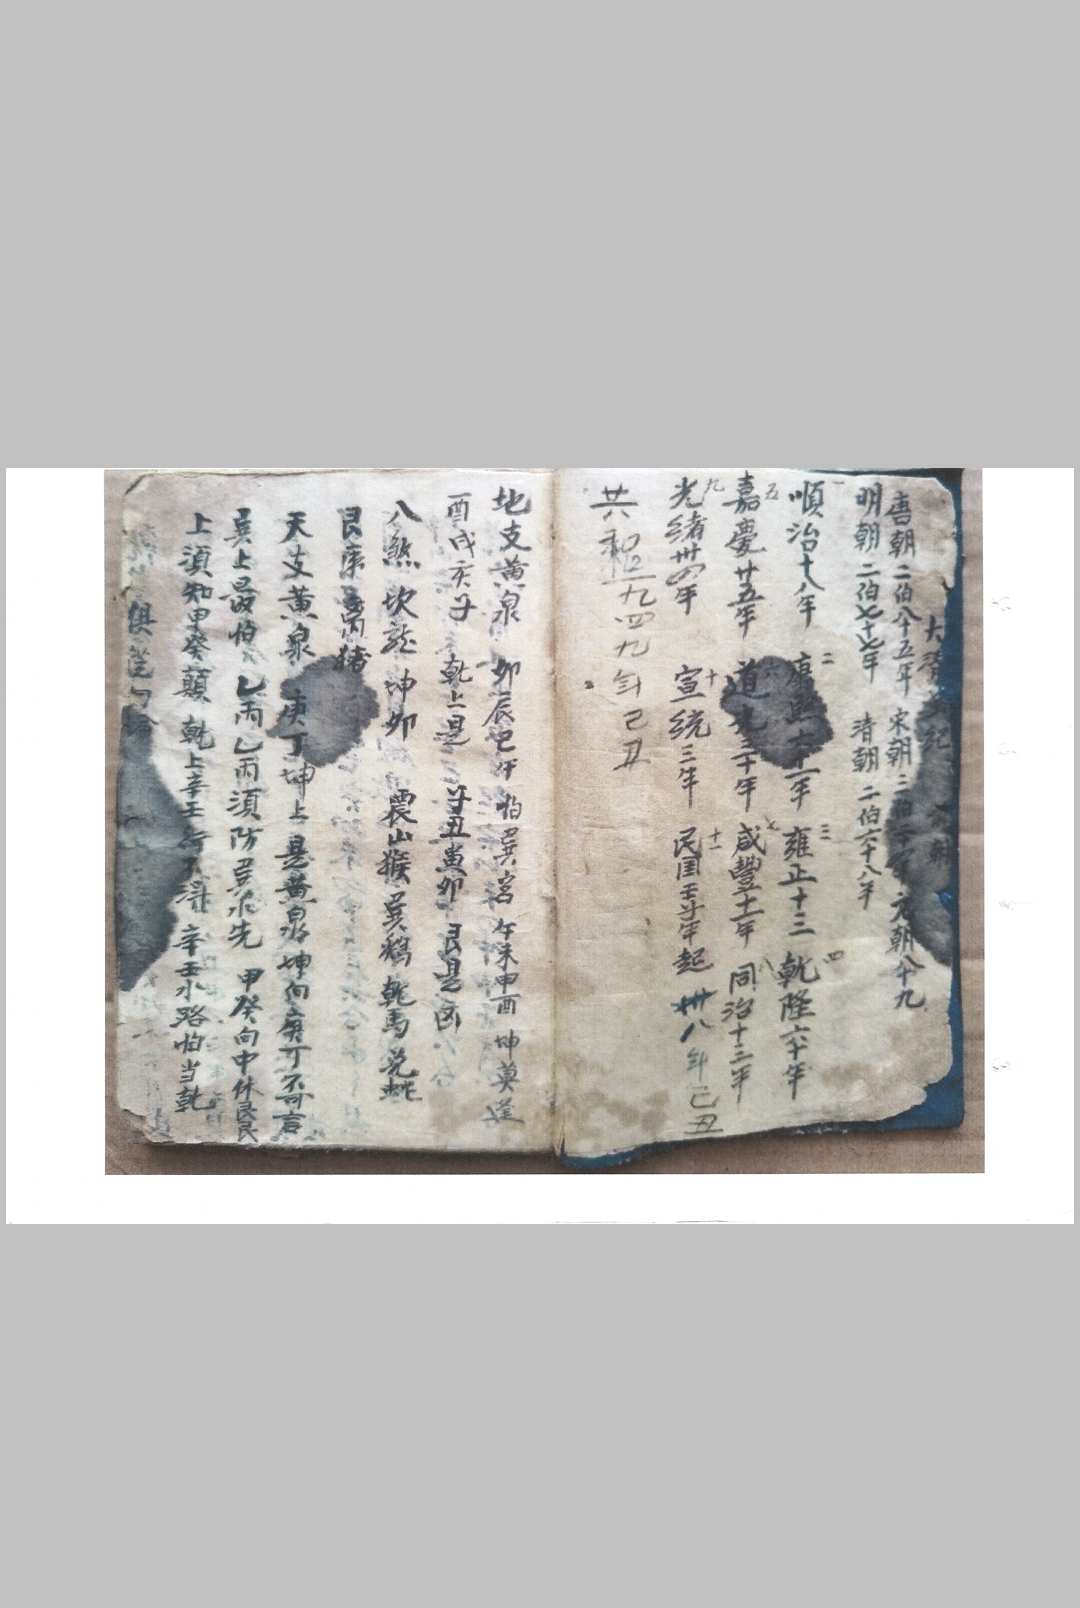 大清
唐朝二伯八十五年 宋朝三伯二十年 元朝八十九
明朝二伯七十七年 清朝二伯六十八年
一順治十八年 二康熙六十一年 三雍正十三 四乾隆六十年
五嘉慶廿五年 六道光三十年 七咸豐十一年 八同治十三年
九光緒卅四年 十宣統三年 十一民国壬子年起 卅八年己丑
共和 一九四九年己丑
地支黄泉 卯辰巳午怕巽宮 午未申酉坤莫逢
酉戌亥子乾上是 子丑寅卯艮是凶
八煞 坎龍坤卯震山猴巽鸡乾馬兑蛇
艮虎离猪
天支黄泉 庚丁坤上是黄泉坤向庚丁不可言
巽上最怕乙丙乙丙須防巽水先 甲癸向中休艮艮
上須知甲癸顛 乾上辛壬行不得 辛壬水路怕当乾
俱